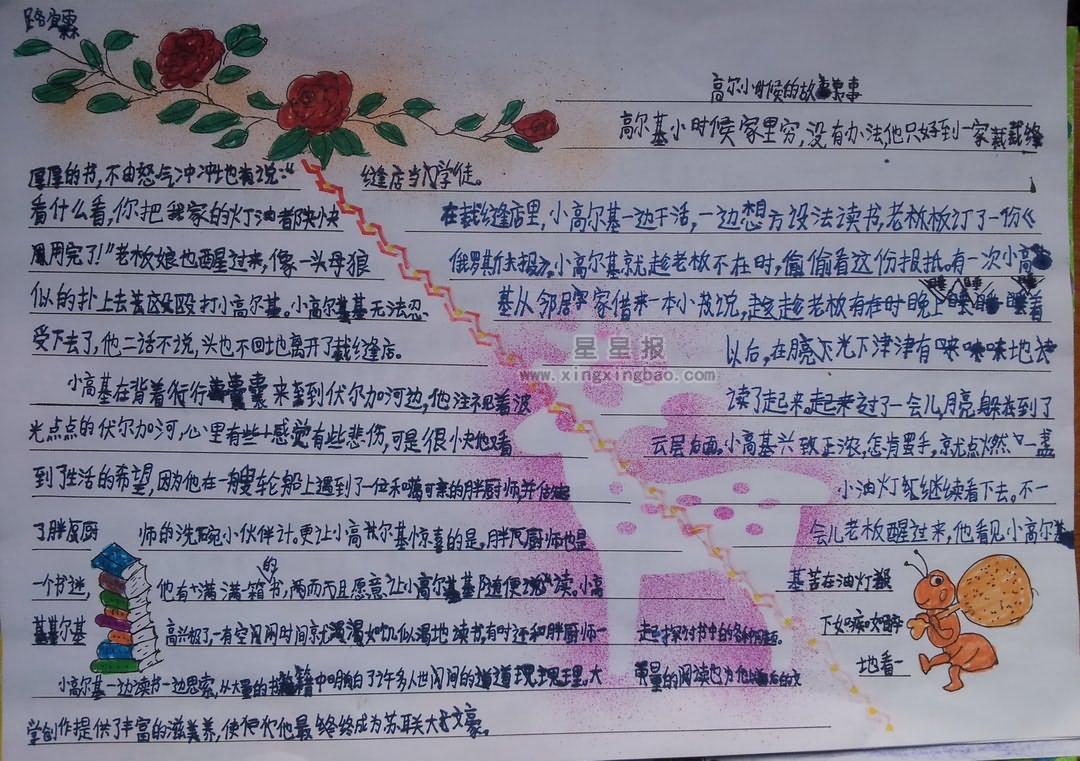 高尔小时候的故事
高尔基小时候家里穷,没有办法,他只好到一家裁缝
缝店当学徒。
在裁缝店里,小高尔基一边干活,一边想方设法读书,老板板订了一份《
俄罗斯快报》。小高尔基就趁老板不在时,偷偷看这份报纸。有一次小高
基从邻居家借来一本小说,趁老板在时晚上睡着
以后,在月亮下光下津津有味地
读了起来。起来过了一会儿,月亮躲到了
云层后面。小高基兴致正浓,怎肯罢手,就点燃一盏
小油灯继续看下去。不一
会儿老板醒过来,他看见小高尔
基苦在油灯
下如痴如醉
地看一
厚厚的书,不由怒气冲冲地说:“
看什么看,你把我家的灯油都快
用完了!”老板娘也醒过来,像一头母狼
似的扑上去殴打小高尔基。小高尔基无法忍
受下去了,他二话不说,头也不回地离开了裁缝店。
小高基在背着行囊来到伏尔加河边,他注视着波
光点点的伏尔加河,心里有些感觉有些悲伤,可是很快他又看
到了生活的希望,因为他在一艘轮船上遇到了一位和蔼可亲的胖厨师,并
了胖厨 师的洗碗小伙伴计。更让小高尔基惊喜的是,胖厨师也是
一个书迷, 他有满满一箱的书,而且愿意让小高尔基随便读。小高
基尔基 高兴极了,一有空闲时间就如饥似渴地读书,有时还和胖厨师一起探讨书中的各种问题。
小高尔基一边读书一边思索,从大量的书籍中明白了许多人世间的道理。大量的阅读也为他以后的文
学创作提供了丰富的滋养,使他最终成为苏联大文豪。
星星报
www.xingxingbao.com